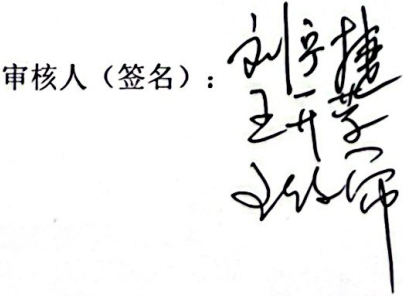 审核人（签名）：刘宁捷
王开学